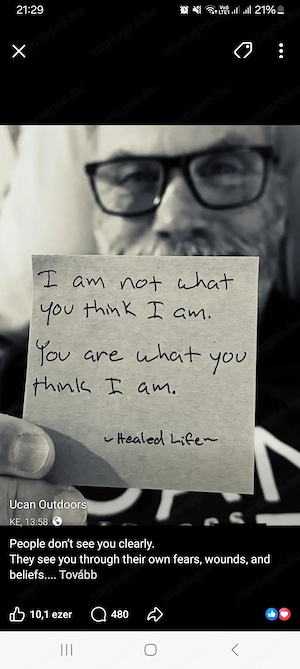 21:29
21%
I am not what
you think I am.
You are what you
think I am.
~Healed Life~
Ucan Outdoors
KE, 13:58
People don't see you clearly.
They see you through their own fears, wounds, and
beliefs.... Tovább
10,1 ezer
480